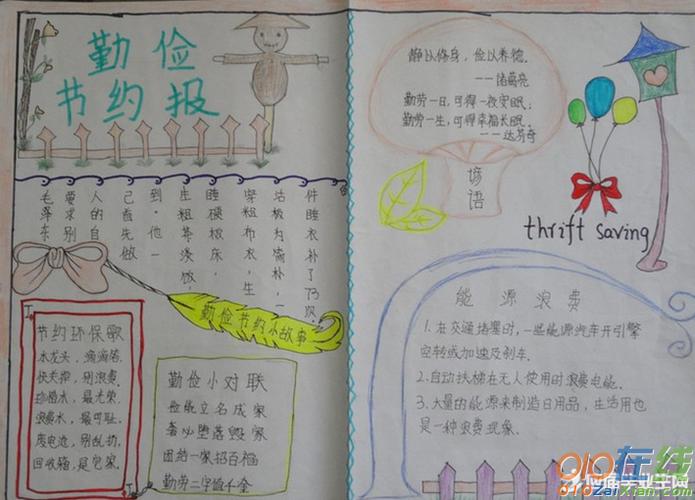 勤俭
节约报
毛泽东
要求别
人的自
己首先做
到,他一
生粗茶淡饭,
睡硬板床,
穿粗布衣,生
活极为简朴,一
件睡衣补了73次。
勤俭节约小故事
节约环保歌
水龙头,滴滴落,
快关掉,别浪费。
珍惜水,最光荣,
浪费水,最可耻。
废电池,别乱扔,
回收箱,是它家。
勤俭小对联
俭能立名成家
奢必堕落毁家
团结一家招百福
勤劳二字值千金
静以修身,俭以养德。
——诸葛亮
勤劳一日,可得一夜安眠;
勤劳一生,可得幸福长眠。
——达芬奇
谚语
thrift saving
能源浪费
1.在交通堵塞时,一些能源汽车开引擎
空转或加速及刹车.
2.自动扶梯在无人使用时浪费电能.
3.大量的能源来制造日用品,生活用也
是一种浪费现象.
010在线
应届毕业生网
010zaixian.com